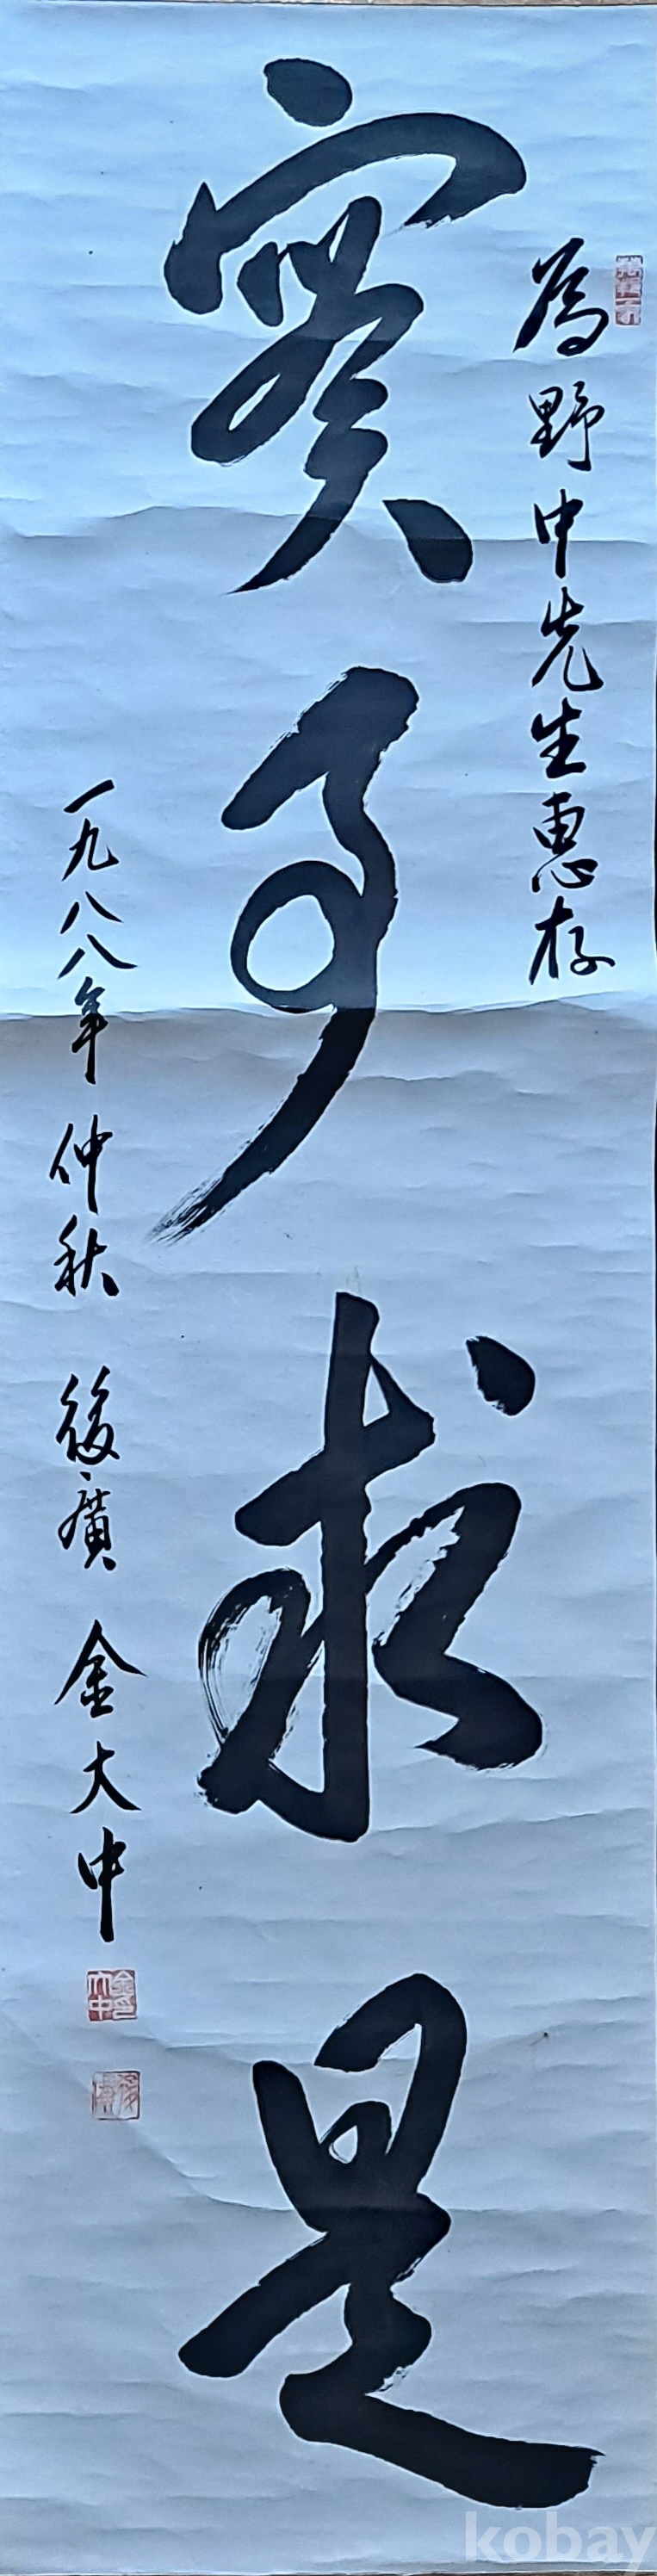 為野中先生惠存
實事求是
一九八八年 仲秋 後廣 金大中
金大中印
後廣
kobay